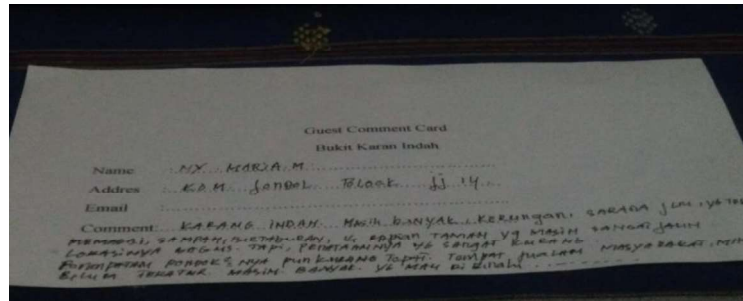 Guest Comment Card
Bukit Karan Indah
Name : NY. MARIA.M
Addres : K.D.M. JONDOL. TOLAAK. JJ 14
Email :
Comment: KARANG INDAH. Masih banyak kekurangan. SARADA JLN, yg
MEMADAI, SAMPAH, TAMAN yg MASIH SANGAT JAUH
LOKASINYA BAGUS. TAPI, PENATAANNYA YG SANGAT KURANG
PONDOKS NYA PUN KURANG TEPAT. TEMPAT JUALAN MASYARAKAT,
BELUM TERATUR. MASIH BANYAK YG MAU DI BENAHI